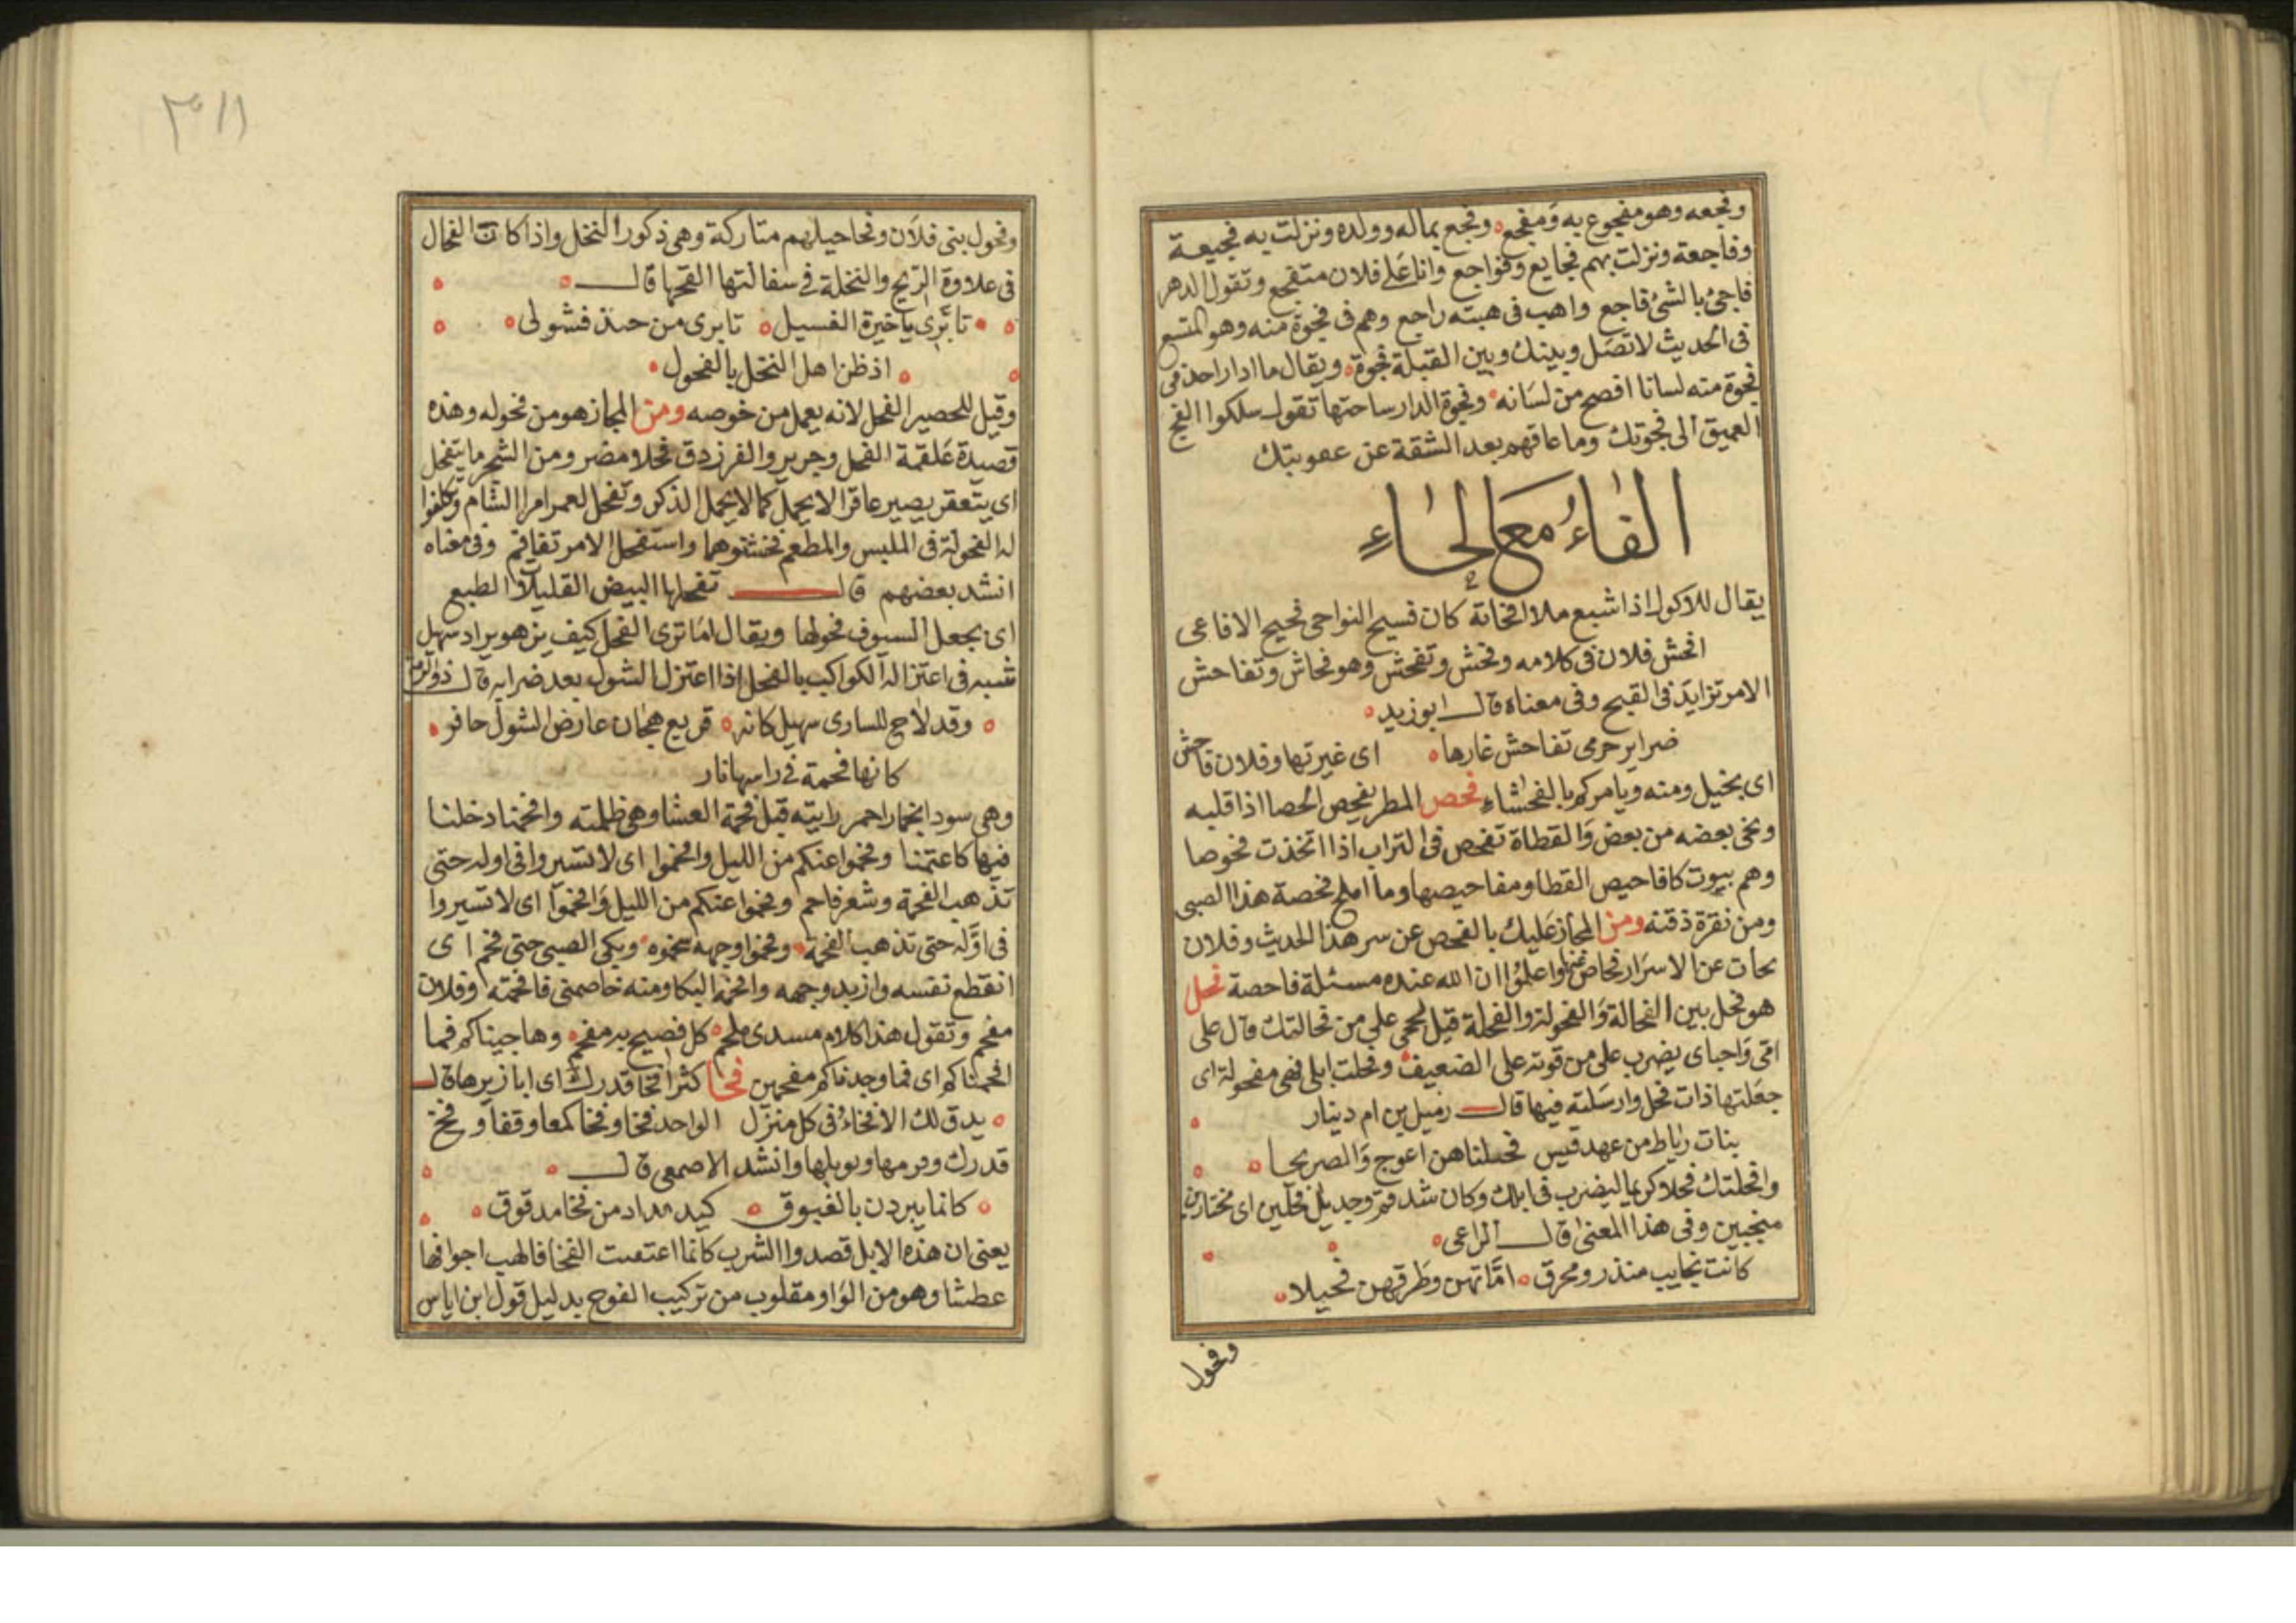 وفجعه وهو مفجوع به ومفجع وفجع بماله وولده ونزلت به فجيعة
وفاجعة ونزلت بهم فجايع وفواجع وانا على فلان متفجع وتقول الدهر
فاجئ بالشئ فاجع واهب فى هبته راجع وهم فى فجوة منه وهو المتسع
فى الحديث لا تصل وبينك وبين القبلة فجوة ويقال ما ادار احد فى
فجوة منه لسانا افصح من لسانه وفجوة الدار ساحتها تقول سلكوا الفج
العميق الى فجوتك وما عاقهم بعد الشقة عن عقوبتك
الفاء مع الحاء
يقال للاكول اذا شبع ملا افحاثه كان فسيح النواحى فحيح الافاعى
افحش فلان فى كلامه وفحش وتفحش وهو فحاش وتفاحش
الامر تزايد فى القبح وفى معناه قال ابو زيد
ضراير حرمى تفاحش غارها اى غيرتها وفلان فاحش
اى بخيل ومنه ويامركم بالفحشاء فحص المطر يفحص الحصا اذا قلبه
ونحى بعضه من بعض والقطاة تفحص فى التراب اذا اتخذت فحوصا
وهم بيوت كافاحيص القطا ومفاحيصها وما املح فحصة هذا الصبى
ومن نقرة ذقنه ومن المجاز عليك بالفحص عن سر هذا الحديث وفلان
بحاث عن الاسرار فحاص عنها واعلموا ان الله عنده مسئلة فاحصة فحل
هو فحل بين الفحالة والفحولة والفحلة قيل لحى على من فحالتك قال على
امى واجباى يضرب على من قوته على الضعيف وفحلت ابلى فهى مفحولة اى
جعلتها ذات فحل وارسلته فيها قال زميل بن ام دينار
بنات رباط من عهد قيس فحلناهن اعوج والصريحا
وافحلتك فحلا كريما ليضرب فى ابلك وكان شدقم وجديل فحلين اى مختارين
منجبين وفى هذا المعنى قال الراعى
كانت نجايب منذر ومحرق اماتهن وطرقهن فحيلا
وفحول
٣١١
وفحول بنى فلان وفحاحيلهم متاركة وهى ذكور النخل واذا كانت الفحال
فى علاوة الريح والنخلة فى سفالتها القحها قال
تابرى يا خيرة الفسيل تابرى من حنذ فشولى
اذ ظن اهل النخل بالفحول
وقيل للحصير الفحل لانه يعمل من خوصه ومن المجاز هو من فحوله وهذه
قصيدة علقمة الفحل وجرير والفرزدق فحلا مضر ومن الشجر ما يتفحل
اى يتعقر يصير عاقرا لا يحمل كما لا يحمل الذكر وتفحل لعمر امرا الشام وتكلفوا
له الفحولة فى الملبس والمطعم فخشنوهما واستفحل الامر تفاقم وفى معناه
انشد بعضهم قال تفحلها البيض القليلات الطبع
اى يجعل السيوف فحولها ويقال اما ترى الفحل كيف يزهو يراد سهيل
شبه فى اعتزاله الكواكب بالفحل اذا اعتزل الشول بعد ضرابه قال ذو الرمة
وقد لاح للسارى سهيل كانه قريع هجان عارض الشول حافر
كانها فحمة فى راسها نار
وهى سودا بخمار احمر رايته قبل فحمة العشا وهى ظلمته وافحمنا دخلنا
فيها كاعتمنا وفحموا عنكم من الليل وافحموا اى لا تسيروا فى اوله حتى
تذهب الفحمة وشعر فاحم وفحموا عنكم من الليل وافحموا اى لا تسيروا
فى اوله حتى تذهب الفحمة وفحموا وجهه سخموه وبكى الصبى حتى فحم اى
انقطع نفسه واربد وجهه وافحمه البكا ومنه خاصمنى فافحمته وفلان
مفحم وتقول هذا كلام مسدى ملحم كل فصيح به مفحم وهاجيناكم فما
افحمناكم اى فما وجدناكم مفحمين فحا كثر افحا قدرك اى ابازيرها قال
يدق لك الافحاء فى كل منزل الواحد فحا وفحا كمعا وقفا وفح
قدرك وقزمها وتوبلها وانشد الاصمعى قال
كانما يبردن بالغبوق كيد مداد من فحا مدقوق
يعنى ان هذه الابل قصدوا الشرب كانما اعتقبت الفحا فالهب اجوافها
عطشا وهو من الواو مقلوب من تركيب الفوح بدليل قول ابن اياس